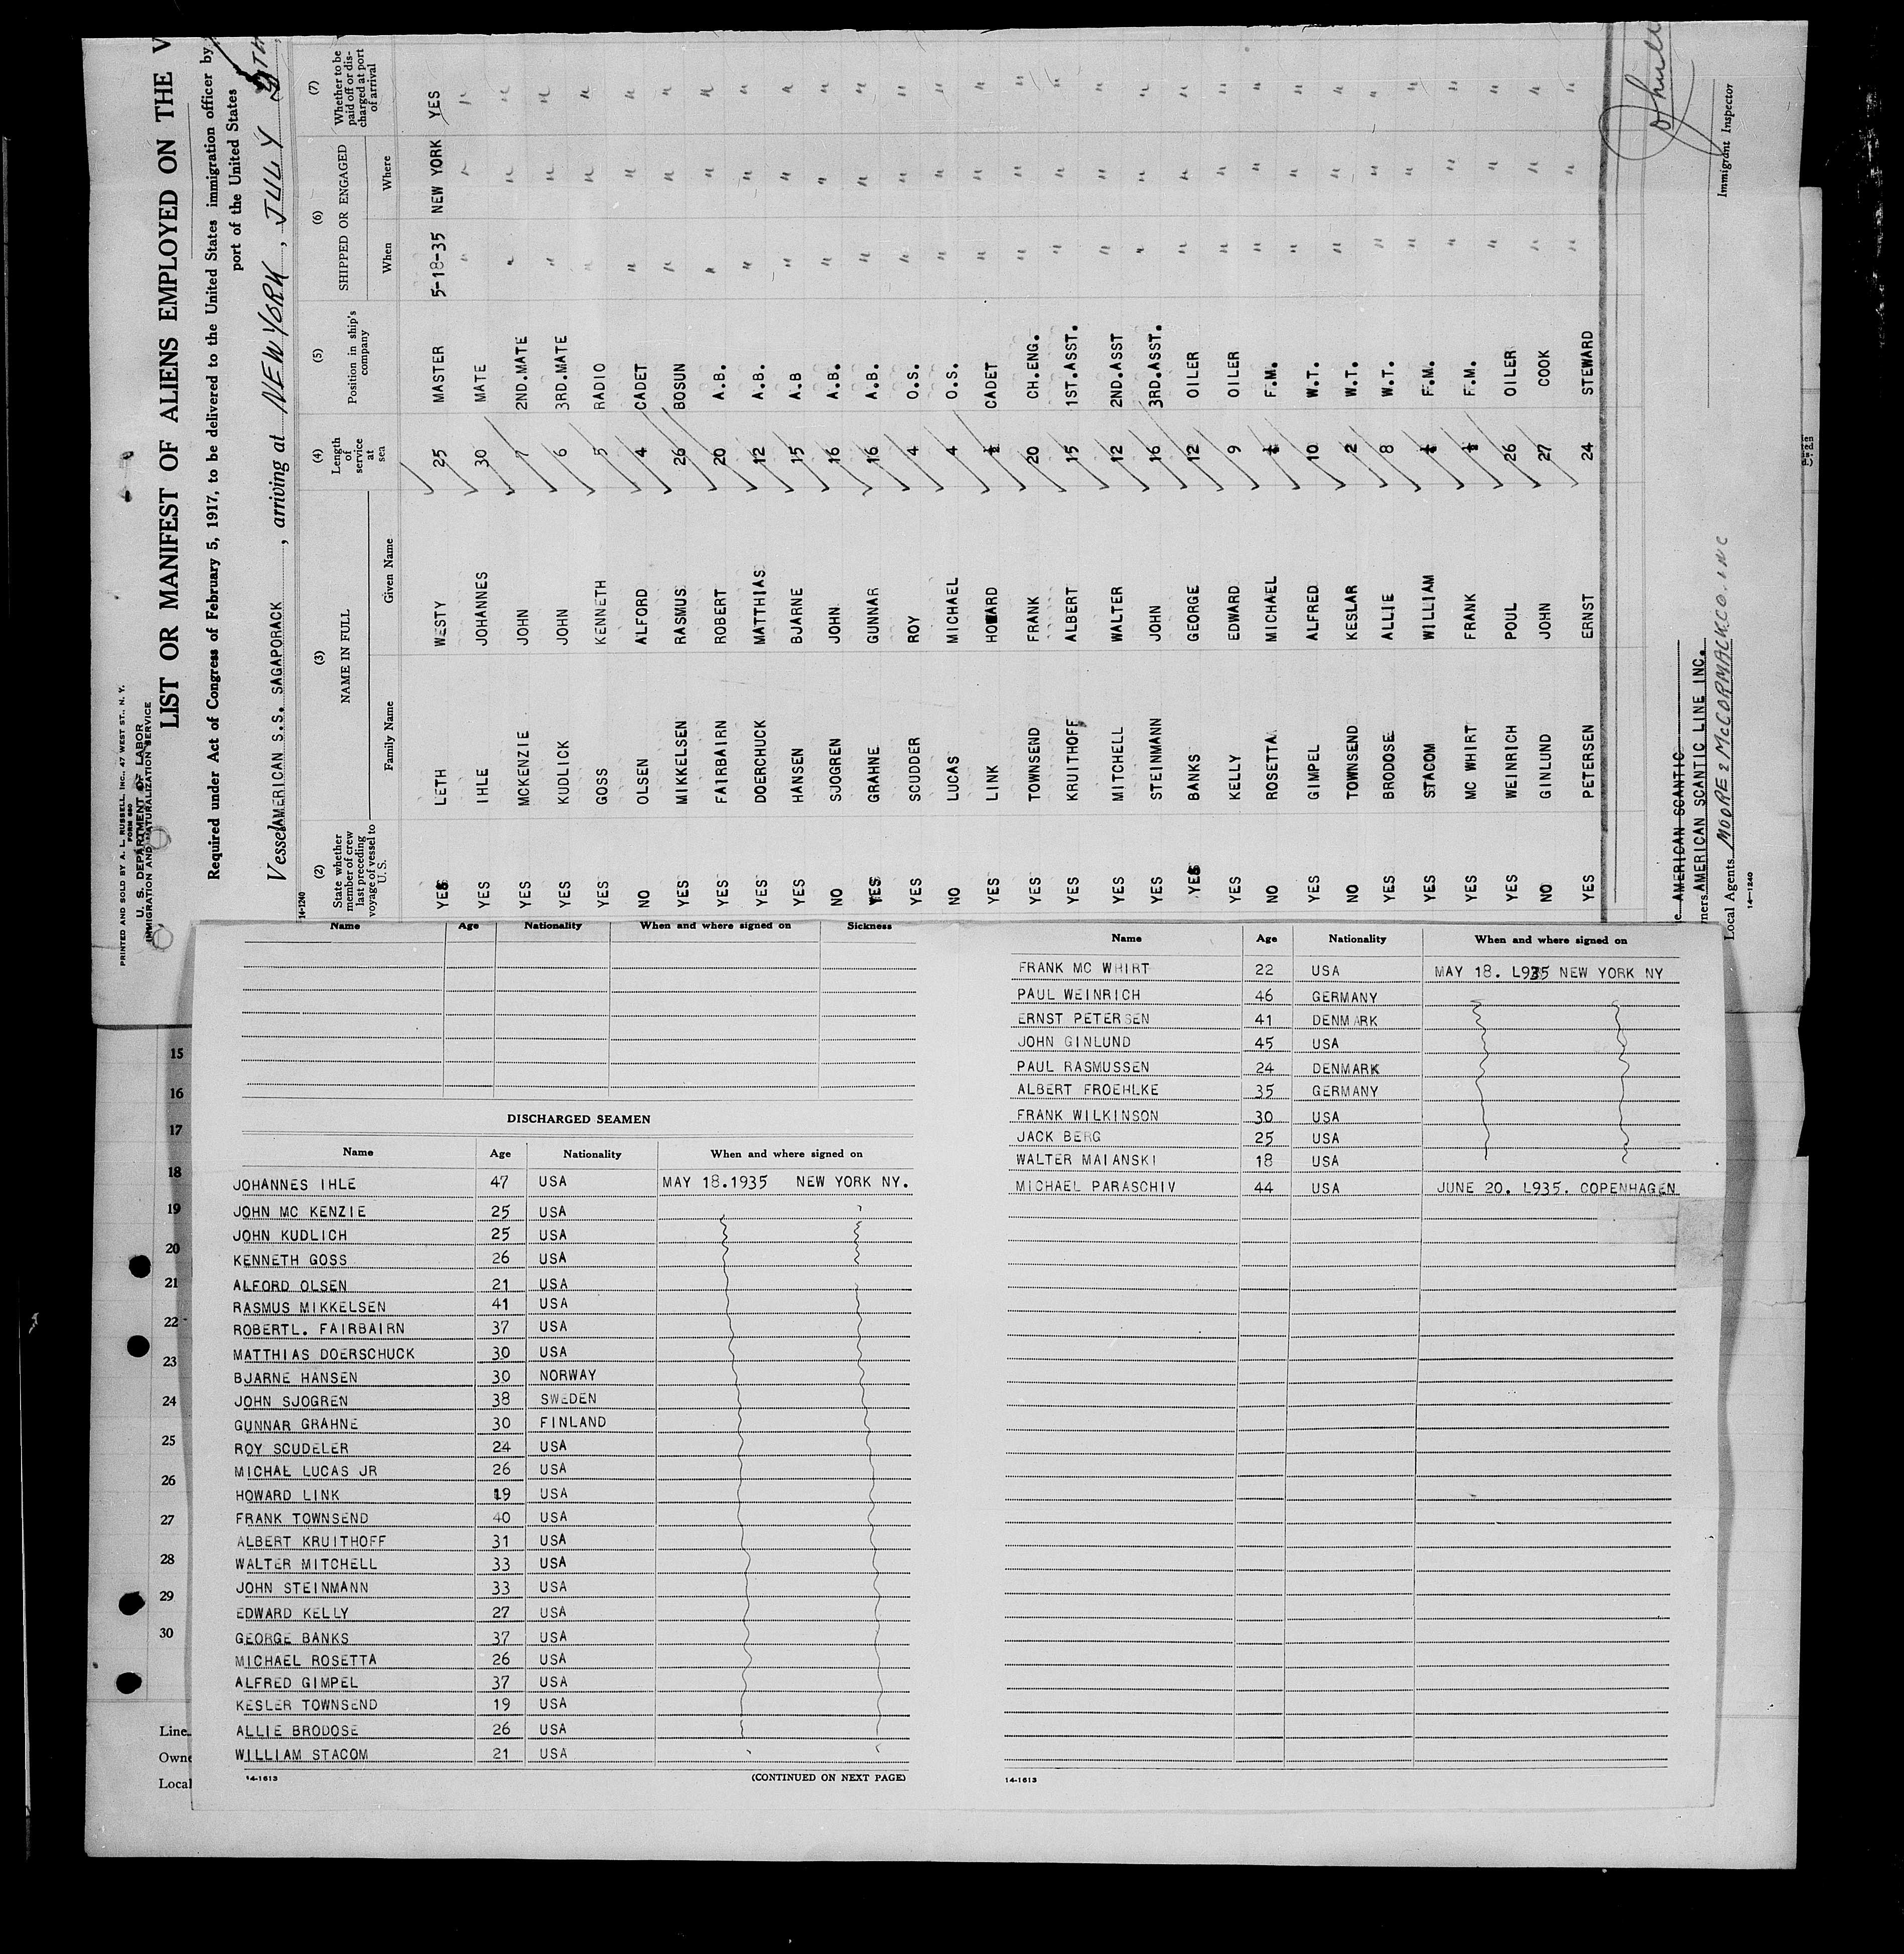 PRINTED AND SOLD BY A. L. RUSSELL, INC., 47 WEST ST., N. Y.
FORM 680
U. S. DEPARTMENT OF LABOR
IMMIGRATION AND NATURALIZATION SERVICE
LIST OR MANIFEST OF ALIENS EMPLOYED ON THE V
Required under Act of Congress of February 5, 1917, to be delivered to the United States immigration officer by
port of the United States
Vessel AMERICAN S.S. SAGAPORACK, arriving at NEW YORK, JULY 5TH
14-1240
(2) (3) (4) (5) (6) (7)
State whether member of crew last preceding voyage of vessel to U. S. NAME IN FULL Length of service at sea Position in ship's company SHIPPED OR ENGAGED Whether to be paid off or discharged at port of arrival
Family Name Given Name When Where
YES LETH WESTY 25 MASTER 5-18-35 NEW YORK YES
YES IHLE JOHANNES 30 MATE " " "
YES MCKENZIE JOHN 7 2ND.MATE " " "
YES KUDLICK JOHN 6 3RD.MATE " " "
YES GOSS KENNETH 5 RADIO " " "
NO OLSEN ALFORD 4 CADET " " "
YES MIKKELSEN RASMUS 26 BOSUN " " "
YES FAIRBAIRN ROBERT 20 A.B. " " "
YES DOERCHUCK MATTHIAS 12 A.B. " " "
YES HANSEN BJARNE 15 A.B " " "
NO SJOGREN JOHN 16 A.B. " " "
YES GRAHNE GUNNAR 16 A.B. " " "
YES SCUDDER ROY 4 O.S. " " "
NO LUCAS MICHAEL 4 O.S. " " "
YES LINK HOWARD CADET " " "
YES TOWNSEND FRANK 20 CH.ENG. " " "
YES KRUITHOFF ALBERT 15 1ST.ASST. " " "
YES MITCHELL WALTER 12 2ND.ASST " " "
YES STEINMANN JOHN 16 3RD.ASST. " " "
YES BANKS GEORGE 12 OILER " " "
YES KELLY EDWARD 9 OILER " " "
NO ROSETTA MICHAEL F.M. " " "
YES GIMPEL ALFRED 10 W.T. " " "
NO TOWNSEND KESLAR 2 W.T. " " "
YES BRODOSE ALLIE 8 W.T. " " "
YES STACOM WILLIAM F.M. " " "
YES MC WHIRT FRANK F.M. " " "
YES WEINRICH POUL 26 OILER " " "
NO GINLUND JOHN 27 COOK " " "
YES PETERSEN ERNST 24 STEWARD " " "
AMERICAN SCANTIC
ners AMERICAN SCANTIC LINE INC.
Local Agents MOORE & McCORMACK CO. INC
Immigrant Inspector
14-1240
Name Age Nationality When and where signed on Sickness
DISCHARGED SEAMEN
Name Age Nationality When and where signed on
JOHANNES IHLE 47 USA MAY 18.1935 NEW YORK NY.
JOHN MC KENZIE 25 USA
JOHN KUDLICH 25 USA
KENNETH GOSS 26 USA
ALFORD OLSEN 21 USA
RASMUS MIKKELSEN 41 USA
ROBERTL. FAIRBAIRN 37 USA
MATTHIAS DOERSCHUCK 30 USA
BJARNE HANSEN 30 NORWAY
JOHN SJOGREN 38 SWEDEN
GUNNAR GRAHNE 30 FINLAND
ROY SCUDELER 24 USA
MICHAL LUCAS JR 26 USA
HOWARD LINK 19 USA
FRANK TOWNSEND 40 USA
ALBERT KRUITHOFF 31 USA
WALTER MITCHELL 33 USA
JOHN STEINMANN 33 USA
EDWARD KELLY 27 USA
GEORGE BANKS 37 USA
MICHAEL ROSETTA 26 USA
ALFRED GIMPEL 37 USA
KESLER TOWNSEND 19 USA
ALLIE BRODOSE 26 USA
WILLIAM STACOM 21 USA
14-1613 (CONTINUED ON NEXT PAGE)
Name Age Nationality When and where signed on
FRANK MC WHIRT 22 USA MAY 18. L935 NEW YORK NY
PAUL WEINRICH 46 GERMANY
ERNST PETERSEN 41 DENMARK
JOHN GINLUND 45 USA
PAUL RASMUSSEN 24 DENMARK
ALBERT FROEHLKE 35 GERMANY
FRANK WILKINSON 30 USA
JACK BERG 25 USA
WALTER MAIANSKI 18 USA
MICHAEL PARASCHIV 44 USA JUNE 20. L935. COPENHAGEN
14-1613
15
16
17
18
19
20
21
22
23
24
25
26
27
28
29
30
Line
Owne
Local